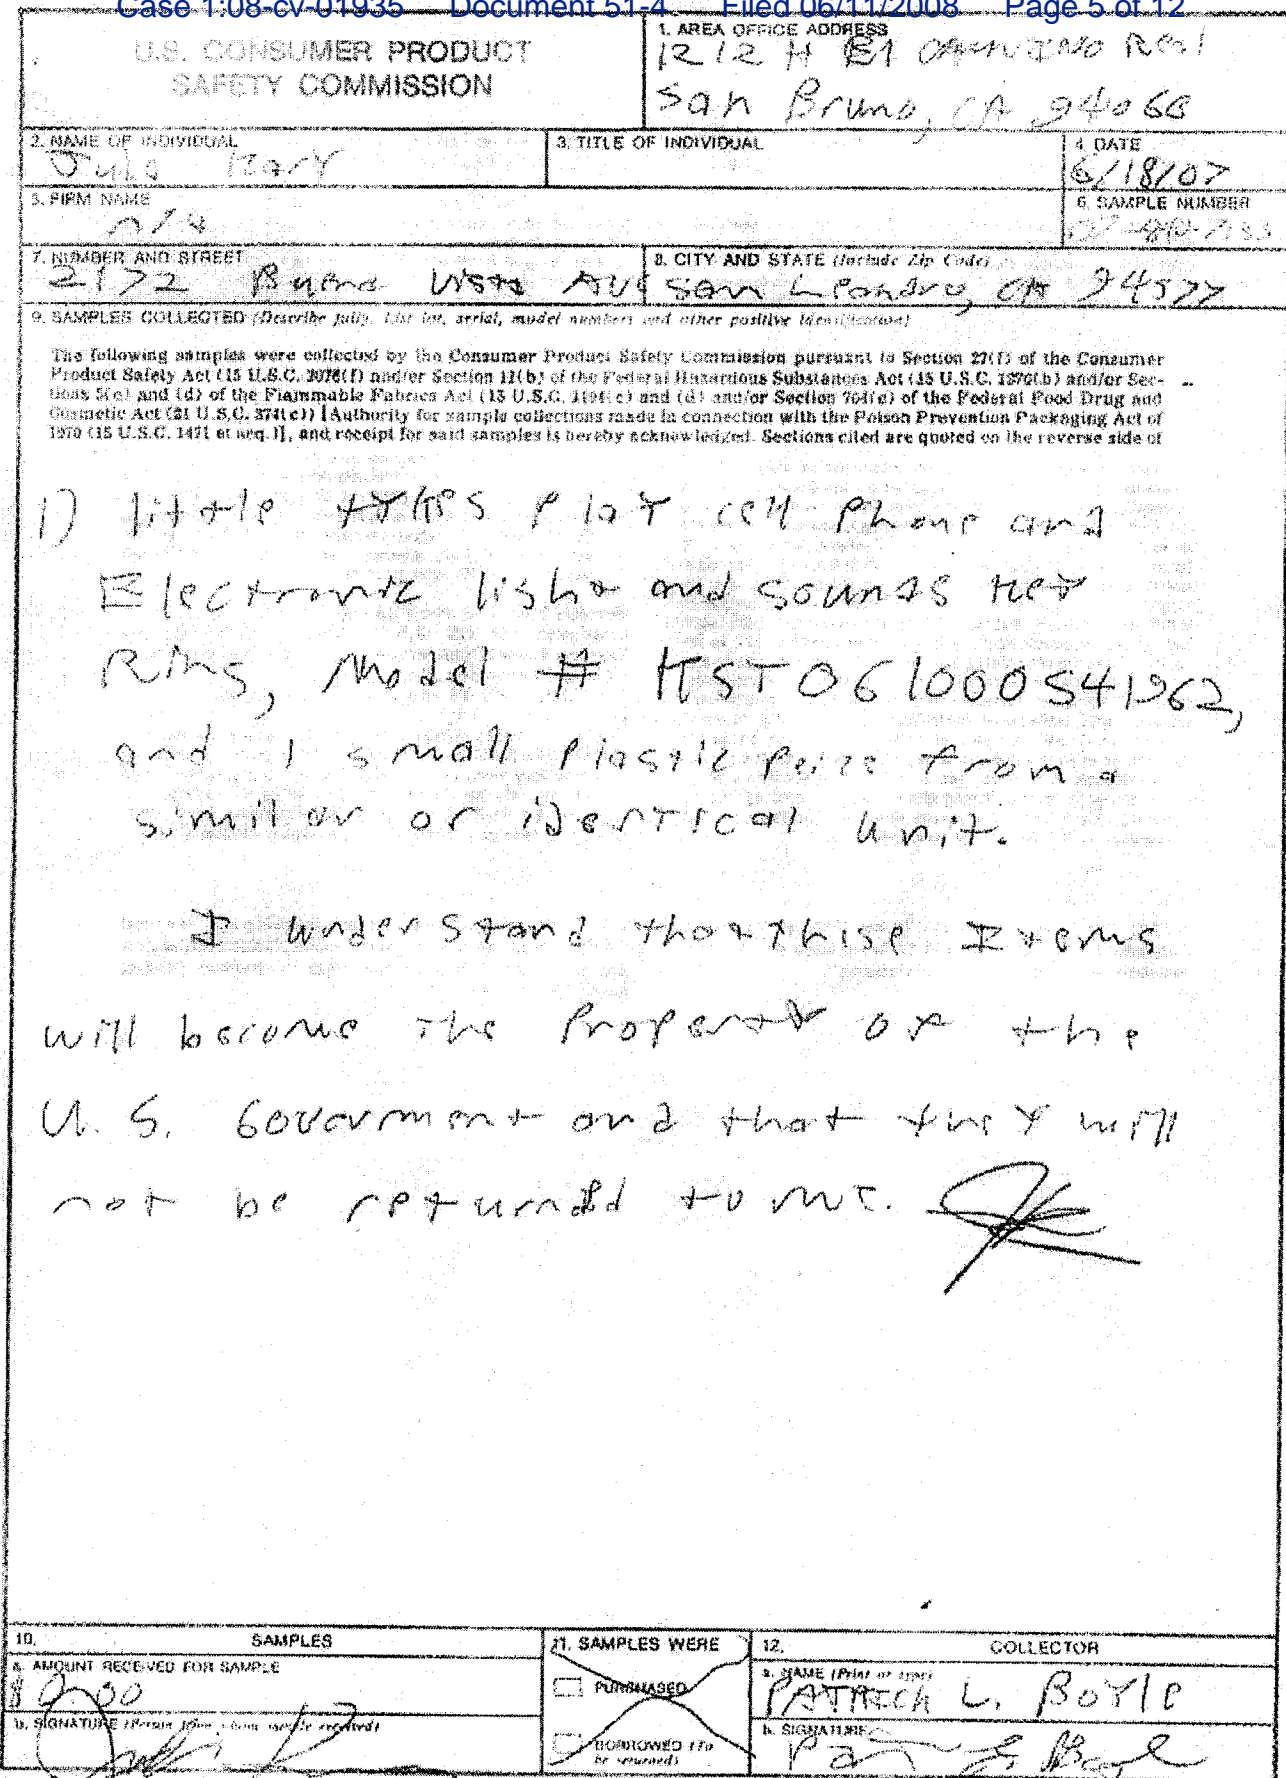 Case 1:08-cv-01935 Document 51-4 Filed 06/11/2008 Page 5 of 12
U.S. CONSUMER PRODUCT
SAFETY COMMISSION
1. AREA OFFICE ADDRESS
1212 H El Camino Real
San Bruno, CA 94066
2. NAME OF INDIVIDUAL
3. TITLE OF INDIVIDUAL
4. DATE
6/18/07
5. FIRM NAME
n/a
6. SAMPLE NUMBER
7. NUMBER AND STREET
2172 Buena Vista Ave
8. CITY AND STATE (Include Zip Code)
San Leandro, CA 94577
9. SAMPLES COLLECTED (Describe fully. List lot, serial, model numbers and other positive identification)
The following samples were collected by the Consumer Product Safety Commission pursuant to Section 27(f) of the Consumer
Product Safety Act (15 U.S.C. 2076(f) and/or Section 11(b) of the Federal Hazardous Substances Act (15 U.S.C. 1270(b) and/or Sec-
tions 5(c) and (d) of the Flammable Fabrics Act (15 U.S.C. 1194(c) and (d) and/or Section 704(c) of the Federal Food Drug and
Cosmetic Act (21 U.S.C. 374(c)) [Authority for sample collections made in connection with the Poison Prevention Packaging Act of
1970 (15 U.S.C. 1471 et seq.)], and receipt for said samples is hereby acknowledged. Sections cited are quoted on the reverse side of
1) little tykes Play cell Phone and
Electronic light and sounds Key
Ring, Model # KST061000541962,
and 1 small Plastic Peice from a
similar or identical unit.
I understand that thise Items
will become the Property of the
U.S. Government and that they will
not be returned to me.
10. SAMPLES
a. AMOUNT RECEIVED FOR SAMPLE
$0.00
b. SIGNATURE (Person from whom sample received)
11. SAMPLES WERE
PURCHASED
BORROWED (To
be returned)
12. COLLECTOR
a. NAME (Print or type)
PATRICK L. BOYLE
b. SIGNATURE